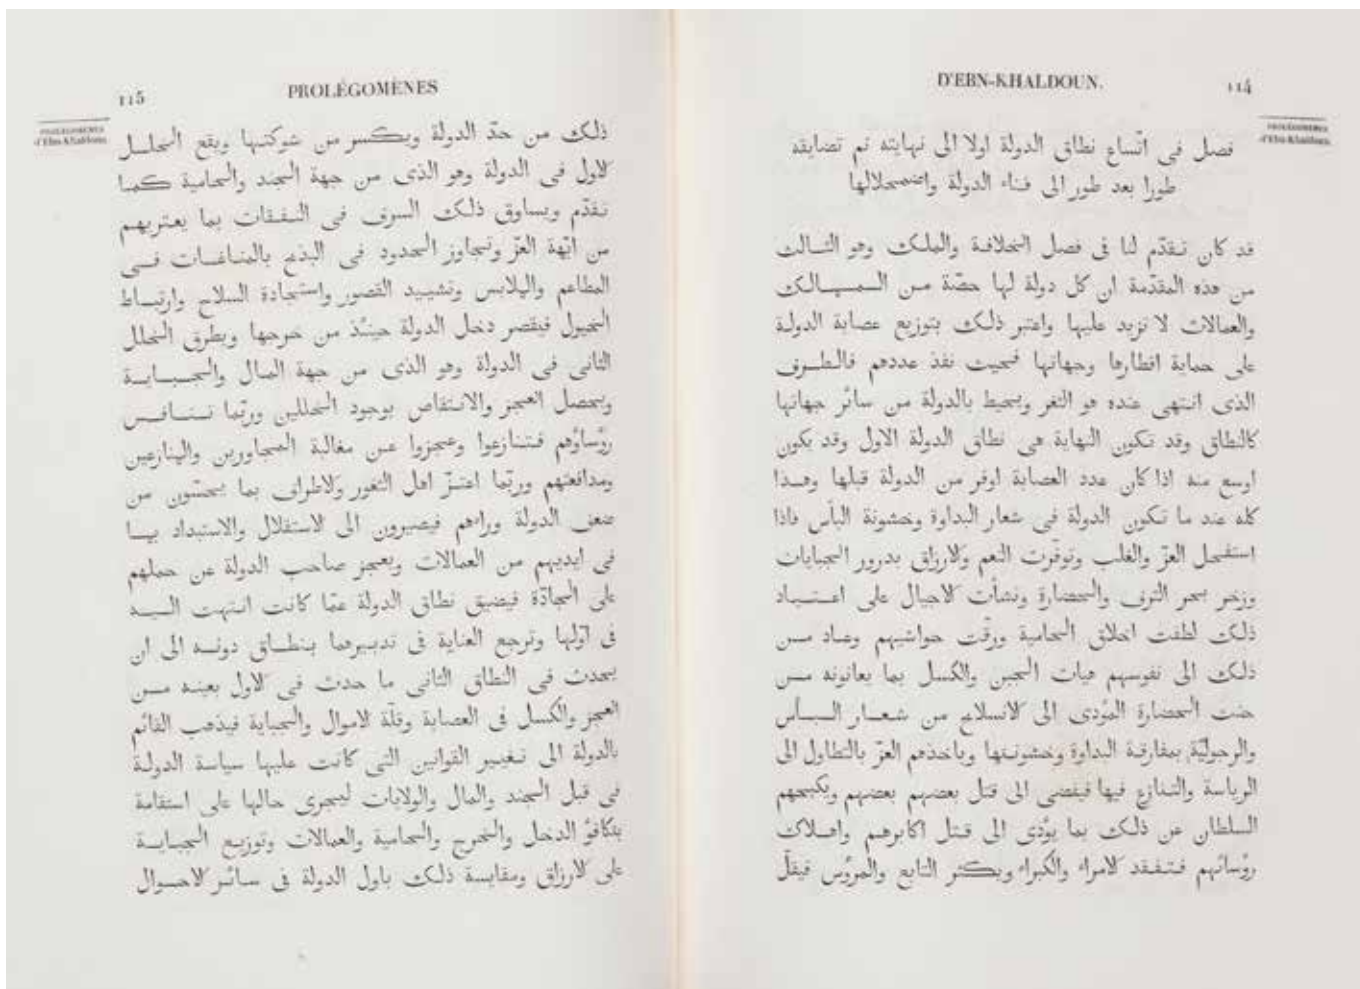 D'EBN-KHALDOUN.
114
PROLÉGOMÈNES
d'Ebn-Khaldoun.
فصل فى اتّساع نطاق الدولة اولا الى نهايته ثم تضايقه
طورا بعد طور الى فناء الدولة واضمحلالها
قد كان تقدّم لنا فى فصل الخلافة والملك وهو الثالث
من هذه المقدّمة ان كل دولة لها حصّة من الممالك
والعمالات لا تزيد عليها واعتبر ذلك بتوزيع عصابة الدولة
على حماية اقطارها وجهاتها فحيث نفذ عددهم فالطرف
الذى انتهى عنده هو الثغر ويحيط بالدولة من سائر جهاتها
كالنطاق وقد تكون النهاية هى نطاق الدولة الاول وقد يكون
اوسع منه اذا كان عدد العصابة اوفر من الدولة قبلها وهذا
كله عند ما تكون الدولة فى شعار البداوة وخشونة البأس فاذا
استفحل العزّ والغلب وتوفّرت النعم والارزاق بدرور الجبايات
وزخر بحر الترف والحضارة ونشأت الاجيال على اعتياد
ذلك لطفت اخلاق الحامية ورقّت حواشيهم وعاد من
ذلك الى نفوسهم هيات الجبن والكسل بما يعانونه من
خنث الحضارة المؤدى الى الانسلاخ من شعار البأس
والرجوليّة بمفارقة البداوة وخشونتها وياخذهم العزّ بالتطاول الى
الرياسة والتنازع فيها فيفضى الى قتل بعضهم بعضهم ويكبحهم
السلطان عن ذلك بما يؤدى الى قتل اكابرهم واهلاك
رؤسائهم فتفقد الامراء والكبراء ويكثر التابع والمرؤس فيقلّ
115
PROLÉGOMÈNES
PROLÉGOMÈNES
d'Ebn-Khaldoun.
ذلك من حدّ الدولة ويكسر من شوكتها ويقع الخلل
الاول فى الدولة وهو الذى من جهة الجند والحامية كما
تقدّم ويساوق ذلك السرف فى النفقات بما يعتريهم
من ابّهة العزّ وتجاوز الحدود فى البذخ بالمنافسات فى
المطاعم والملابس وتشييد القصور واستجادة السلاح وارتباط
الخيول فيقصر دخل الدولة حينئذ من خرجها ويطرق الخلل
الثانى فى الدولة وهو الذى من جهة المال والجباية
ويحصل العجز والانتقاص بوجود الخللين وربّما تنافس
رؤساؤهم فتنازعوا وعجزوا عن مغالبة المجاورين والمنازعين
ومدافعتهم وربّما اعتزّ اهل الثغور والاطراف بما يحسّون من
ضعف الدولة وراءهم فيصيرون الى الاستقلال والاستبداد بما
فى ايديهم من العمالات ويعجز صاحب الدولة عن حملهم
على الجادّة فيضيق نطاق الدولة عمّا كانت انتهت اليه
فى اوّلها وترجع العناية فى تدبيرها بنطاق دونه الى ان
يحدث فى النطاق الثانى ما حدث فى الاول بعينه من
العجز والكسل فى العصابة وقلّة الاموال والجباية فيذهب القائم
بالدولة الى تغيير القوانين التى كانت عليها سياسة الدولة
فى قبل الجند والمال والولايات ليجرى حالها على استقامة
بتكافؤ الدخل والخرج والحامية والعمالات وتوزيع الجباية
على الارزاق ومقايسة ذلك باول الدولة فى سائر الاحوال